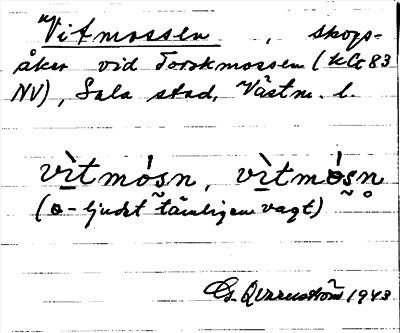 "Vitmossen , skogs-
åker vid Torskmossen (kLt 83
NV), Sala stad, Västm. l.
vìtmósn, vìtmósn
(o-ljudet tämligen vagt)
G. 1943